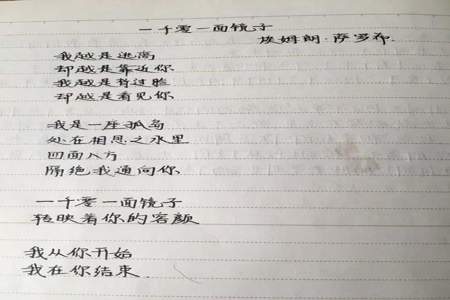 一千零一面镜子
埃姆朗·萨罗希
我越是逃离
却越是靠近你
我越是背过脸
却越是看见你
我是一座孤岛
处在相思之水里
四面八方
隔绝我通向你
一千零一面镜子
转映着你的容颜
我从你开始
我在你结束